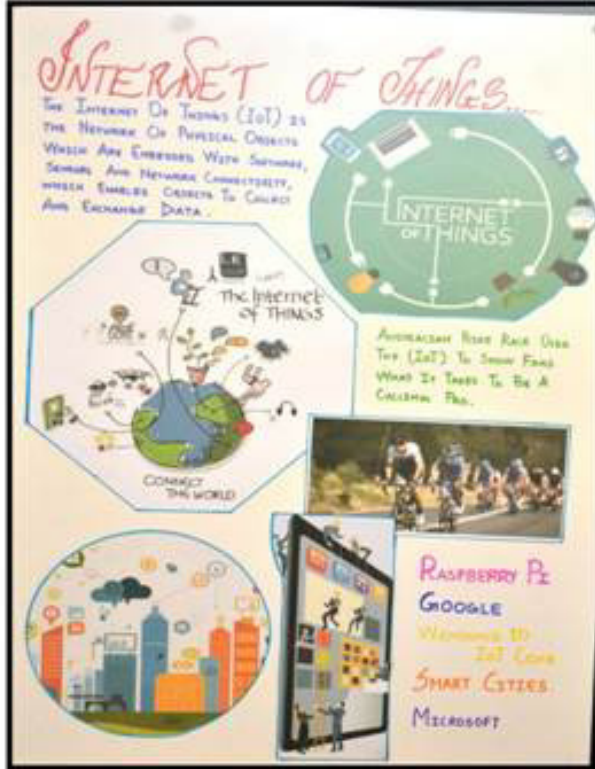 INTERNET OF THINGS....
THE INTERNET OF THINGS (IOT) IS
THE NETWORK OF PHYSICAL OBJECTS
WHICH ARE EMBEDDED WITH SOFTWARE,
SENSORS AND NETWORK CONNECTIVITY,
WHICH ENABLES OBJECTS TO COLLECT
AND EXCHANGE DATA.
INTERNET
OF THINGS
The Internet
of THINGS
CONNECT
THE WORLD
AUSTRALIAN ROAD RACE USES
THE (IOT) TO SHOW FANS
WHAT IT TAKES TO BE A
PRO.
RASPBERRY PI
GOOGLE
WINDOWS 10
IOT CORE
SMART CITIES
MICROSOFT